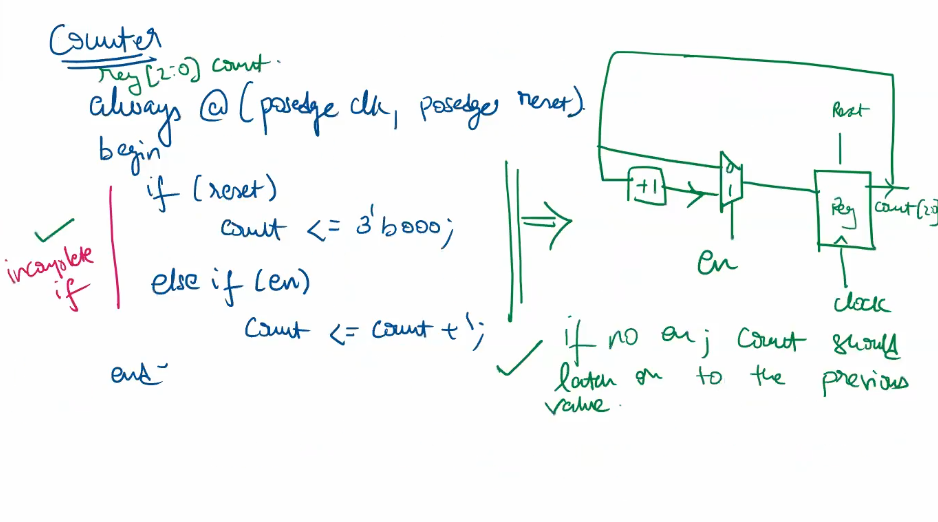 Counter
reg [2:0] count.
always @ (posedge clk, posedge reset)
begin
if (reset)
count <= 3'b000;
else if (en)
count <= count + 1;
end
incomplete
if
+1
0
1
en
Reset
Reg
count [2:0]
clock
if no en; count should
latch on to the previous
value.